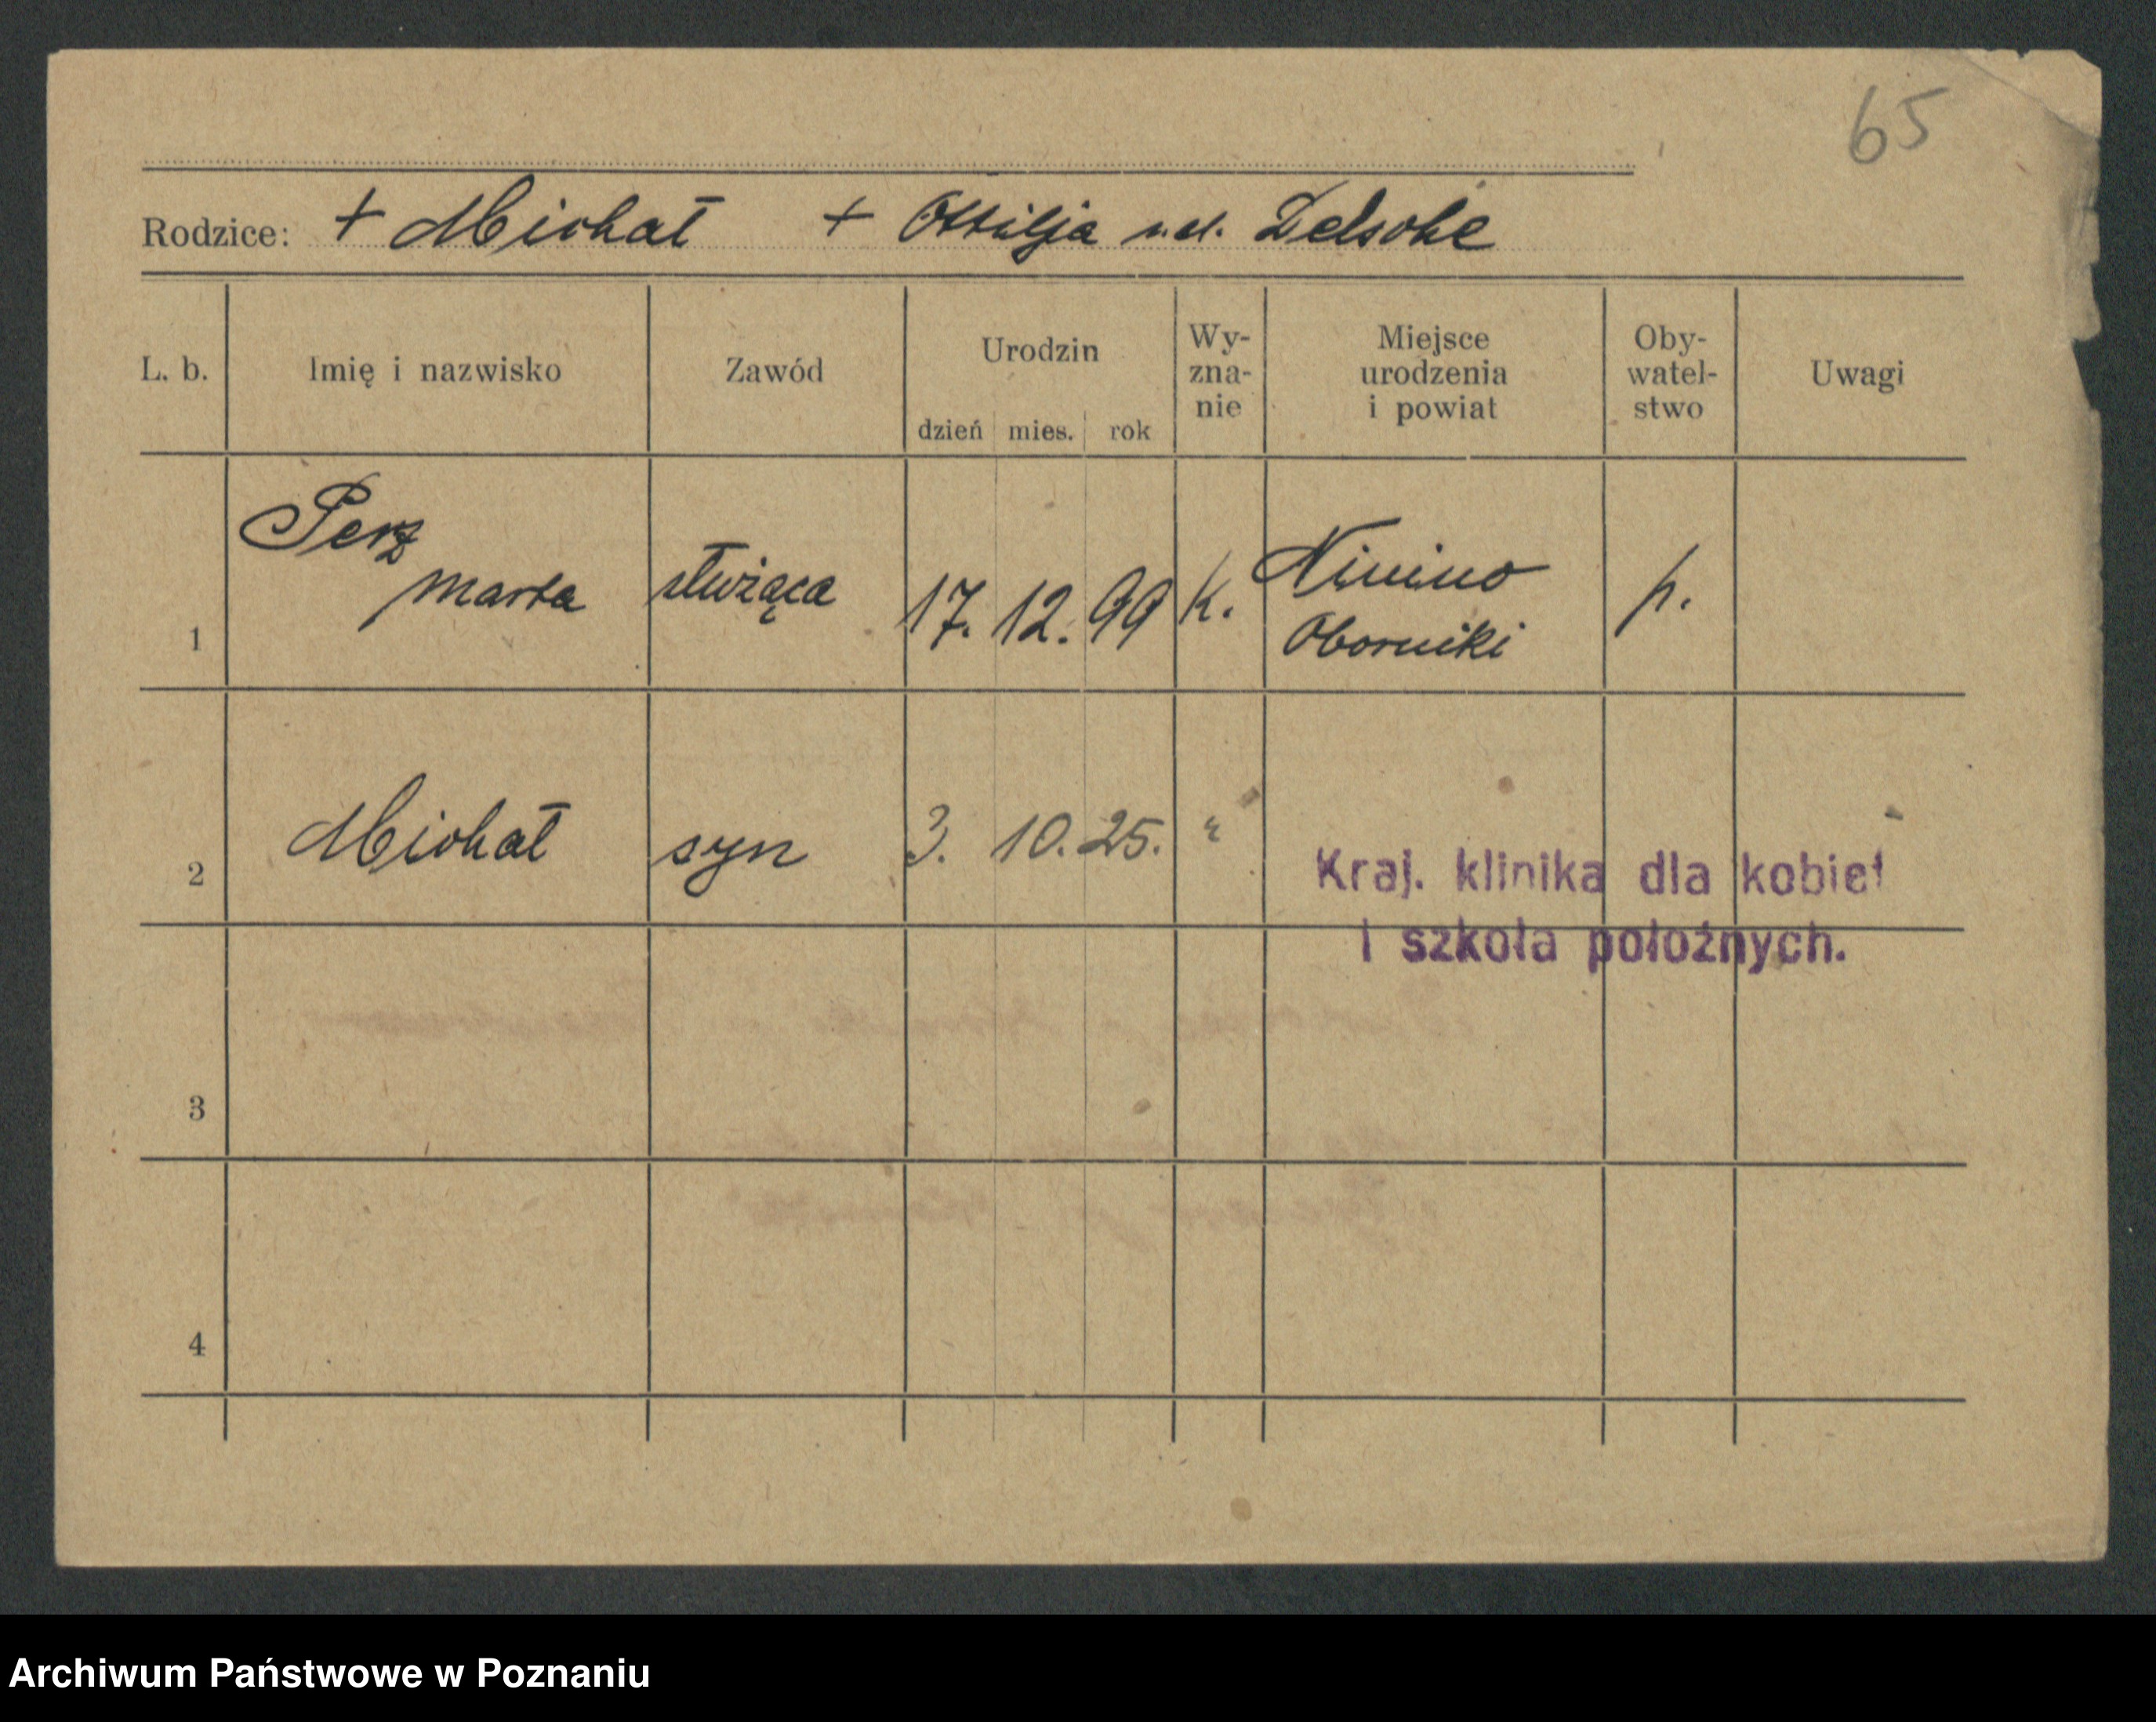 65
Rodzice: + Michał + Ottilja u.d. Zelsche
L. b. Imię i nazwisko Zawód Urodzin dzień mies. rok Wy-zna-nie Miejsce urodzenia i powiat Oby-watel-stwo Uwagi
Perz
1 Marta służąca 17. 12. 99 k. Ninino p.
Oborniki
2 Michał syn 3. 10. 25. "
Kraj. klinika dla kobiet
i szkoła położnych.
3
4
Archiwum Państwowe w Poznaniu